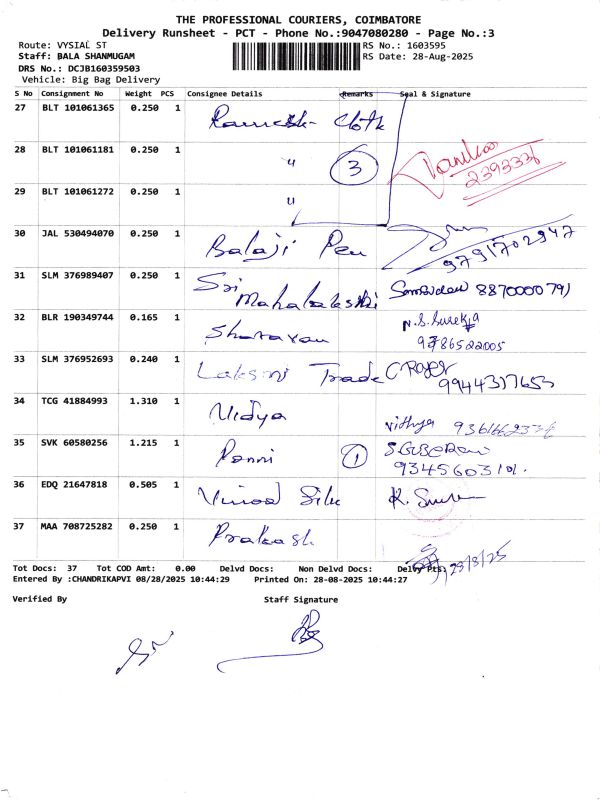 THE PROFESSIONAL COURIERS, COIMBATORE
Delivery Runsheet - PCT - Phone No.:9047080280 - Page No.:3
Route: VYSIAL ST RS No.: 1603595
Staff: BALA SHANMUGAM RS Date: 28-Aug-2025
DRS No.: DCJB160359503
Vehicle: Big Bag Delivery
S No Consignment No Weight PCS Consignee Details Remarks Seal & Signature
27 BLT 101061365 0.250 1 Ramesh Cloth
28 BLT 101061181 0.250 1 " 3
239333
29 BLT 101061272 0.250 1 "
30 JAL 530494070 0.250 1 Balaji Pen 9791702947
31 SLM 376989407 0.250 1 Sri Mahalakshmi 8870000791
32 BLR 190349744 0.165 1 Sharavan N.S.Surekja
9786522005
33 SLM 376952693 0.240 1 Laksmi Trade
9944317653
34 TCG 41884993 1.310 1 Vidya Vithya
35 SVK 60580256 1.215 1 Ponni 1
9345603101.
36 EDQ 21647818 0.505 1 Vinod Silk
37 MAA 708725282 0.250 1 Prakash
28/8/25
Tot Docs: 37 Tot COD Amt: 0.00 Delvd Docs: Non Delvd Docs: Delvy Pts:
Entered By :CHANDRIKAPVI 08/28/2025 10:44:29 Printed On: 28-08-2025 10:44:27
Verified By Staff Signature